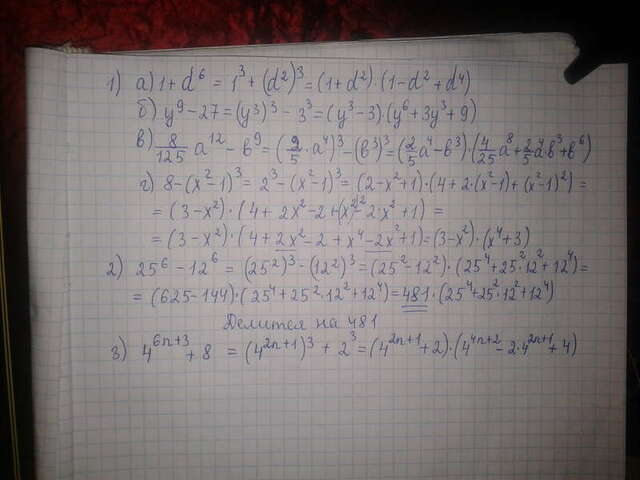 1) а) 1 + d⁶ = 1³ + (d²)³ = (1 + d²) · (1 - d² + d⁴)
б) y⁹ - 27 = (y³)³ - 3³ = (y³ - 3) · (y⁶ + 3y³ + 9)
в) 8/125 a¹² - b⁹ = (2/5 · a⁴)³ - (b³)³ = (2/5 a⁴ - b³) · (4/25 a⁸ + 2/5 a⁴b³ + b⁶)
г) 8 - (x² - 1)³ = 2³ - (x² - 1)³ = (2 - x² + 1) · (4 + 2 · (x² - 1) + (x² - 1)²) =
= (3 - x²) · (4 + 2x² - 2 + (x²)² - 2 · x² + 1) =
= (3 - x²) · (4 + 2x² - 2 + x⁴ - 2x² + 1) = (3 - x²) · (x⁴ + 3)
2) 25⁶ - 12⁶ = (25²)³ - (12²)³ = (25² - 12²) · (25⁴ + 25² · 12² + 12⁴) =
= (625 - 144) · (25⁴ + 25² · 12² + 12⁴) = 481 · (25⁴ + 25² · 12² + 12⁴)
Делится на 481
3) 4⁶ⁿ⁺³ + 8 = (4²ⁿ⁺¹)³ + 2³ = (4²ⁿ⁺¹ + 2) · (4⁴ⁿ⁺² - 2 · 4²ⁿ⁺¹ + 4)